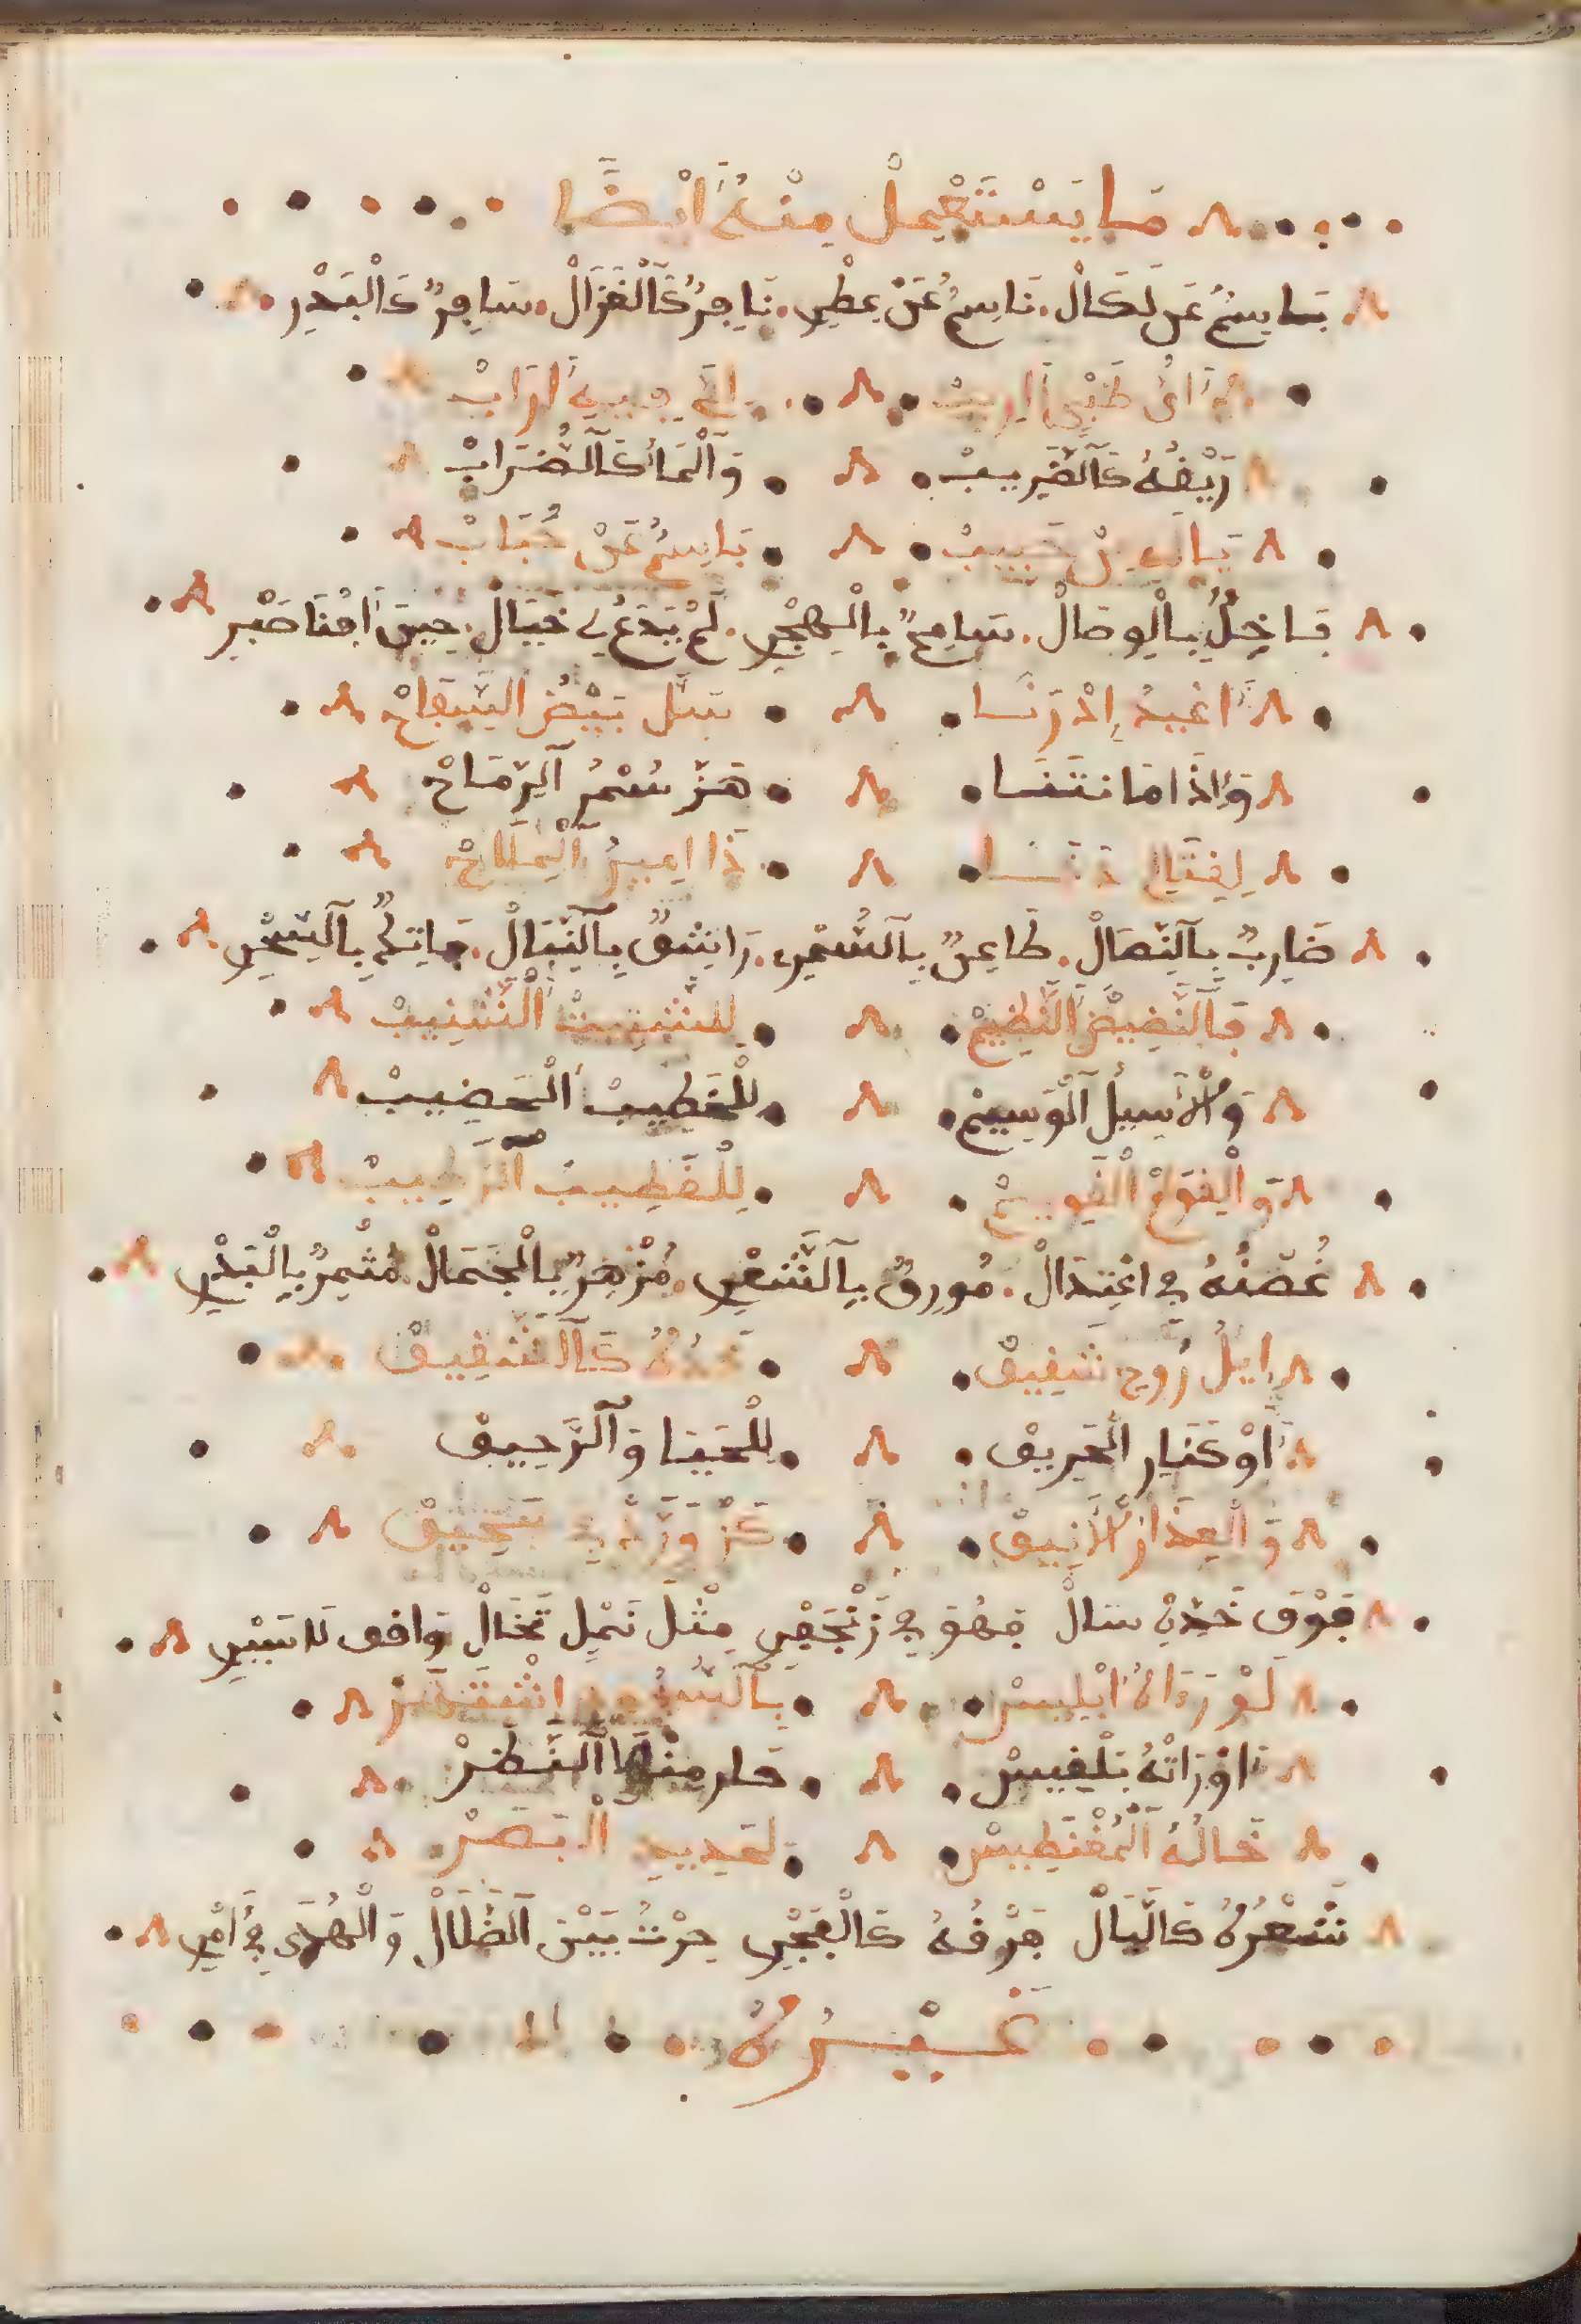 مَا يَسْتَعْمِلْ مِنْهُ أَيْضًا
بَاسِمٌ عَن لَكَالْ. نَاسِمٌ عَنْ عِطْرِ. نَافِرٌ كَٱلْغَزَالْ. سَافِرٌ كَالْبَدْرِ
أَيُّ ظَبْيٍ رَبِيبْ
رِيْقُهُ كَٱلضَّرِيبْ وَٱلْمَا كَٱلضَّرَابْ
يَا لَهُ مِنْ حَبِيبْ بَاسِمٌ عَنْ حُبَابْ
بَاخِلٌ بِالْوِصَالْ. سَامِحٌ بِالْهَجْرِ. لَمْ يَدَعْ لِي خَيَالْ. حِينَ أَفْنَا صَبْرِ
أَغْيَدُ إِذْ رَنَا سَلَّ بِيْضُ الصِّفَاحْ
وَإِذَا مَا انْتَنَا هَزَّ سُمْرُ ٱلرِّمَاحْ
لِقِتَالِ دَنَا ذَا أَمِيرُ ٱلْمِلَاحْ
ضَارِبٌ بِٱلنِّصَالْ. طَاعِنٌ بِٱلسُّمْرِ. رَاشِقٌ بِٱلنِّبَالْ. فَاتِكٌ بِٱلسِّحْرِ
فَٱلنَّضِيضُ النَّظِيمْ لِلشَّتِيتْ ٱلشَّنِيبْ
وَٱلْأَسِيلُ ٱلْوَسِيمْ لِلْخَطِيبْ الْخَضِيبْ
وَالْقَوَامْ الْقَوِيمْ لِلْقَضِيبْ ٱلرَّطِيبْ
غُصْنُهُ فِي اعْتِدَالْ. مُورِقٌ بِٱلشَّعْرِ مُزْهِرٌ بِالْجَمَالْ مُثْمِرٌ بِالْبَدْرِ
إِيلُ رُوحِ شَفِيقْ خَدُّهُ كَٱلشَّقِيقْ
أَوْ كَنَارِ الْحَرِيقْ لِلْحَيَا وَٱلرَّحِيقْ
وَالْعِذَارْ الْأَنِيقْ
فَوْقَ خَدِّهِ سَالْ فَهُوَ فِي زَنْجَفْرِ مِثْلَ نَمْلٍ تَخَالْ وَاقِف لَا يَسْرِ
لَوْ رَءَاهُ إِبْلِيسْ
أَوْ رَأَتْهُ بَلْقِيسْ حَار مِنْهَا ٱلنَّظَرْ
خَالُهُ ٱلْمُغْنَطِيسْ لِحَدِيدِ الْبَصَرْ
شَعْرُهُ كَالَّيَالْ فَرْقُهُ كَالْفَجْرِ حِرْتُ بَيْنَ ٱلضَّلَالْ وَالْهُدَى فِي أَمْرِ
غَيْرُهُ